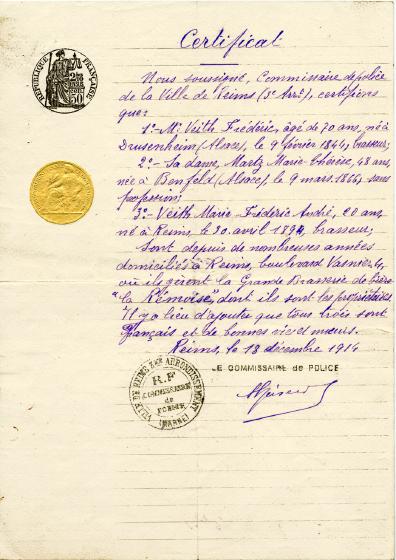 Certificat
RÉPUBLIQUE FRANÇAISE
Nous soussigné, Commissaire de police
de la Ville de Reims (3e Arrt), certifions
que:
1º- Mr Veith Frédéric, âgé de 70 ans, né à
Drusenheim (Alsace), le 9 février 1844, brasseur;
2º- Sa dame, Martz Marie Thérèse, 48 ans,
née à Benfeld (Alsace), le 9 mars 1866, sans
profession;
3º- Veith Marie-Frédéric André, 20 ans,
né à Reims, le 20 avril 1894, brasseur;
Sont depuis de nombreuses années
domiciliés à Reims, boulevard Vasnier 4,
où ils gèrent la Grande Brasserie de bière
"la Rémoise", dont ils sont les propriétaires.
Il y a lieu d'ajouter que tous trois sont
Français et de bonnes vie et mœurs.
Reims, le 18 décembre 1914
LE COMMISSAIRE DE POLICE
VILLE DE REIMS ARRONDISSEMENT
R.F
COMMISSARIAT
de
POLICE
(MARNE)